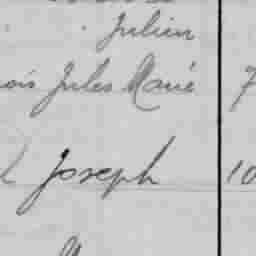 Julien
ois Jules Marie 7
Joseph 10